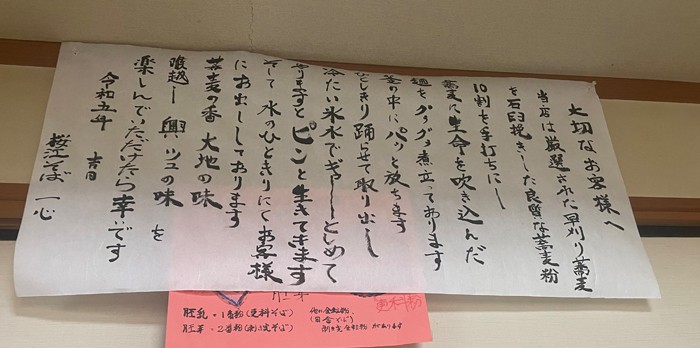 大切なお客様へ
当店は厳選された早刈り蕎麦
を石臼挽きした良質な蕎麦粉
10割を手打ちにし
蕎麦に生命を吹き込んだ
麺をグラグラ煮立っております
釜の中にパッと放ちます
ひとしきり踊らせて取り出し
冷たい氷水でギューーとしめて
やりますとピンと生きてきます
そして水のひときりにてお客様
にお出ししております
蕎麦の香 大地の味
喉越し 興ツユの味 を
楽しんでいただけたら幸いです
令和五年 吉日
桜江そば 一心
更科粉
胚乳・1番粉(更科そば)
胚芽・2番粉